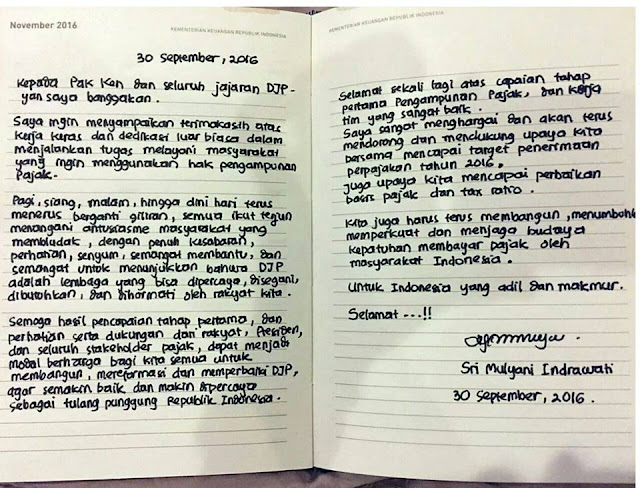 November 2016
KEMENTERIAN KEUANGAN REPUBLIK INDONESIA
30 September, 2016
Kepada Pak Ken dan seluruh jajaran DJP -
yan saya banggakan.
Saya ingin menyampaikan terimakasih atas
kerja keras dan dedikasi luar biasa dalam
menjalankan tugas melayani masyarakat
yang ingin menggunakan hak pengampunan
Pajak.
Pagi, siang, malam, hingga dini hari terus
menerus berganti giliran, semua ikut terjun
menangani antusiasme masyarakat yang
membludak, dengan penuh kesabaran,
perhatian, senyum, semangat membantu, dan
semangat untuk menunjukkan bahwa DJP
adalah lembaga yang bisa dipercaya, disegani,
dibutuhkan, dan dihormati oleh rakyat kita.
Semoga hasil pencapaian tahap pertama, dan
perhatian serta dukungan dari rakyat, Presiden,
dan seluruh stakeholder pajak, dapat menjadi
modal berharga bagi kita semua untuk
membangun, mereformasi dan memperbaiki DJP,
agar semakin baik dan makin dipercaya
sebagai tulang punggung Republik Indonesia.
KEMENTERIAN KEUANGAN REPUBLIK INDONESIA
Selamat sekali lagi atas capaian tahap
pertama Pengampunan Pajak, dan kerja
tim yang sangat baik.
Saya sangat menghargai dan akan terus
mendorong dan mendukung upaya kita
bersama mencapai target penerimaan
perpajakan tahun 2016.
Juga upaya kita mencapai perbaikan
basis pajak dan tax ratio.
Kita juga harus terus membangun, menumbuhk
memperkuat dan menjaga budaya
kepatuhan membayar pajak oleh
masyarakat Indonesia.
Untuk Indonesia yang adil dan makmur.
Selamat ---!!
Sri Mulyani Indrawati
30 September, 2016.